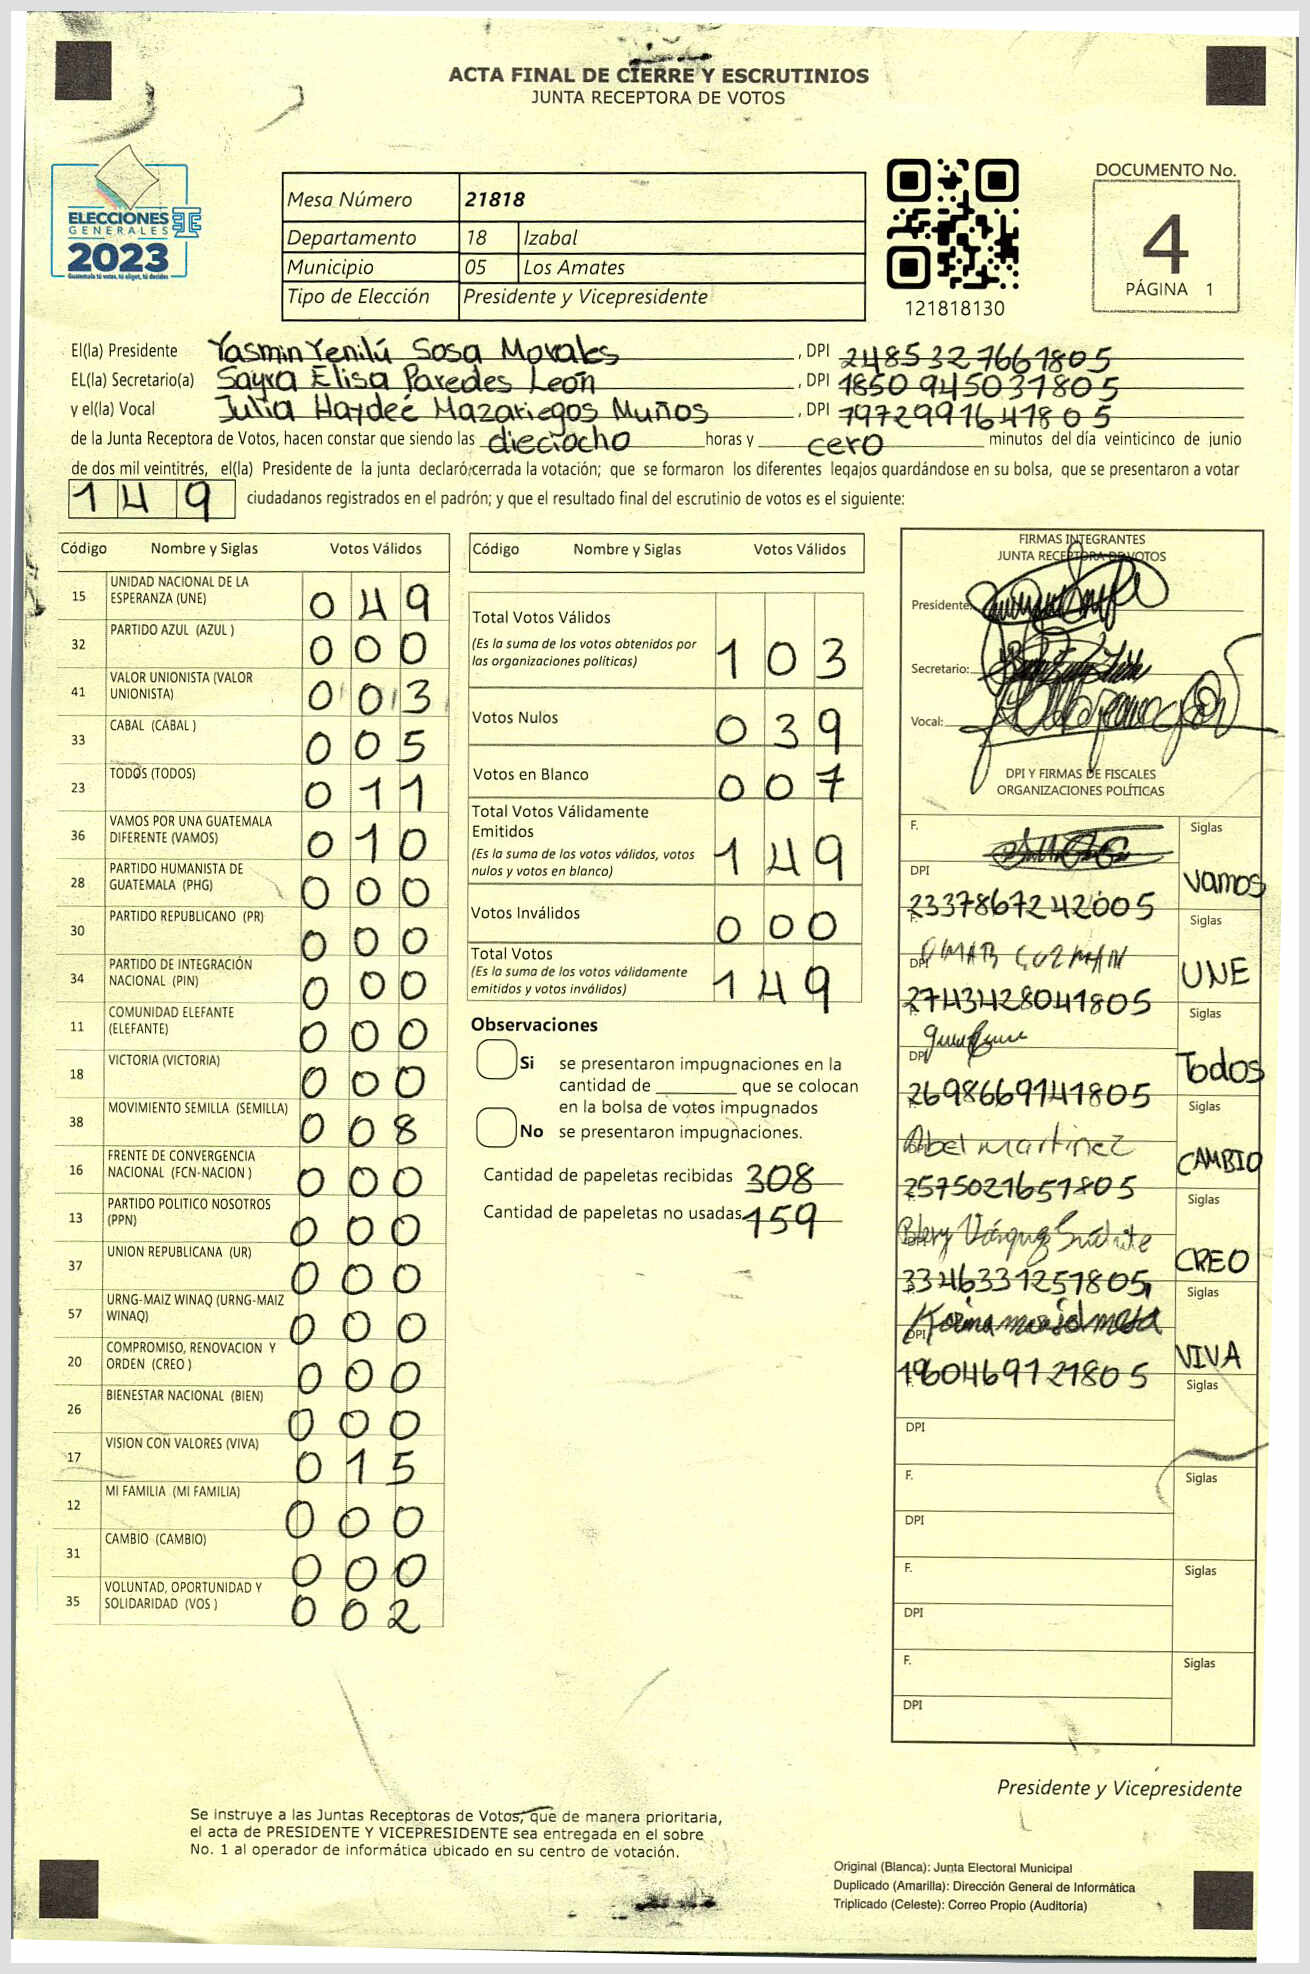 ACTA FINAL DE CIERRE Y ESCRUTINIOS
JUNTA RECEPTORA DE VOTOS
ELECCIONES
GENERALES
2023
Guatemala tú votas, tú eliges, tú decides
Mesa Número 21818
Departamento 18 Izabal
Municipio 05 Los Amates
Tipo de Elección Presidente y Vicepresidente
121818130
DOCUMENTO No.
4
PÁGINA 1
El(la) Presidente Yasmin Yenilú Sosa Morales, DPI 2485327661805
EL(la) Secretario(a) Sayra Elisa Paredes León, DPI 1850945031805
y el(la) Vocal Julia Haydeé Mazariegos Muños, DPI 7972991641805
de la Junta Receptora de Votos, hacen constar que siendo las dieciocho horas y cero minutos del día veinticinco de junio
de dos mil veintitrés, el(la) Presidente de la junta declaró cerrada la votación; que se formaron los diferentes legajos guardándose en su bolsa, que se presentaron a votar
149 ciudadanos registrados en el padrón; y que el resultado final del escrutinio de votos es el siguiente:
Código Nombre y Siglas Votos Válidos
15 UNIDAD NACIONAL DE LA ESPERANZA (UNE) 049
32 PARTIDO AZUL (AZUL ) 000
41 VALOR UNIONISTA (VALOR UNIONISTA) 003
33 CABAL (CABAL ) 005
23 TODOS (TODOS) 011
36 VAMOS POR UNA GUATEMALA DIFERENTE (VAMOS) 010
28 PARTIDO HUMANISTA DE GUATEMALA (PHG) 000
30 PARTIDO REPUBLICANO (PR) 000
34 PARTIDO DE INTEGRACIÓN NACIONAL (PIN) 000
11 COMUNIDAD ELEFANTE (ELEFANTE) 000
18 VICTORIA (VICTORIA) 000
38 MOVIMIENTO SEMILLA (SEMILLA) 008
16 FRENTE DE CONVERGENCIA NACIONAL (FCN-NACION ) 000
13 PARTIDO POLITICO NOSOTROS (PPN) 000
37 UNION REPUBLICANA (UR) 000
57 URNG-MAIZ WINAQ (URNG-MAIZ WINAQ) 000
20 COMPROMISO, RENOVACION Y ORDEN (CREO ) 000
26 BIENESTAR NACIONAL (BIEN) 000
17 VISION CON VALORES (VIVA) 015
12 MI FAMILIA (MI FAMILIA) 000
31 CAMBIO (CAMBIO) 000
35 VOLUNTAD, OPORTUNIDAD Y SOLIDARIDAD (VOS ) 002
Código Nombre y Siglas Votos Válidos
Total Votos Válidos 103
(Es la suma de los votos obtenidos por las organizaciones políticas)
Votos Nulos 039
Votos en Blanco 007
Total Votos Válidamente Emitidos 149
(Es la suma de los votos válidos, votos nulos y votos en blanco)
Votos Inválidos 000
Total Votos 149
(Es la suma de los votos válidamente emitidos y votos inválidos)
Observaciones
Si se presentaron impugnaciones en la
cantidad de ________ que se colocan
en la bolsa de votos impugnados
No se presentaron impugnaciones.
Cantidad de papeletas recibidas 308
Cantidad de papeletas no usadas 159
FIRMAS INTEGRANTES
JUNTA RECEPTORA DE VOTOS
Presidente:
Secretario:
Vocal:
DPI Y FIRMAS DE FISCALES
ORGANIZACIONES POLÍTICAS
F. Siglas
DPI 2337867242005 Vamos
F. OMAR GUZMAN Siglas
DPI 2743428041805 UNE
F. Siglas
DPI 2698669141805 Todos
Abel martinez Siglas
2575021651805 CAMBIO
Siglas
DPI 3346331251805 CREO
Siglas
DPI 1960469121805 VIVA
Siglas
DPI
F. Siglas
DPI
F. Siglas
DPI
F. Siglas
DPI
Presidente y Vicepresidente
Se instruye a las Juntas Receptoras de Votos, que de manera prioritaria,
el acta de PRESIDENTE Y VICEPRESIDENTE sea entregada en el sobre
No. 1 al operador de informática ubicado en su centro de votación.
Original (Blanca): Junta Electoral Municipal
Duplicado (Amarilla): Dirección General de Informática
Triplicado (Celeste): Correo Propio (Auditoría)